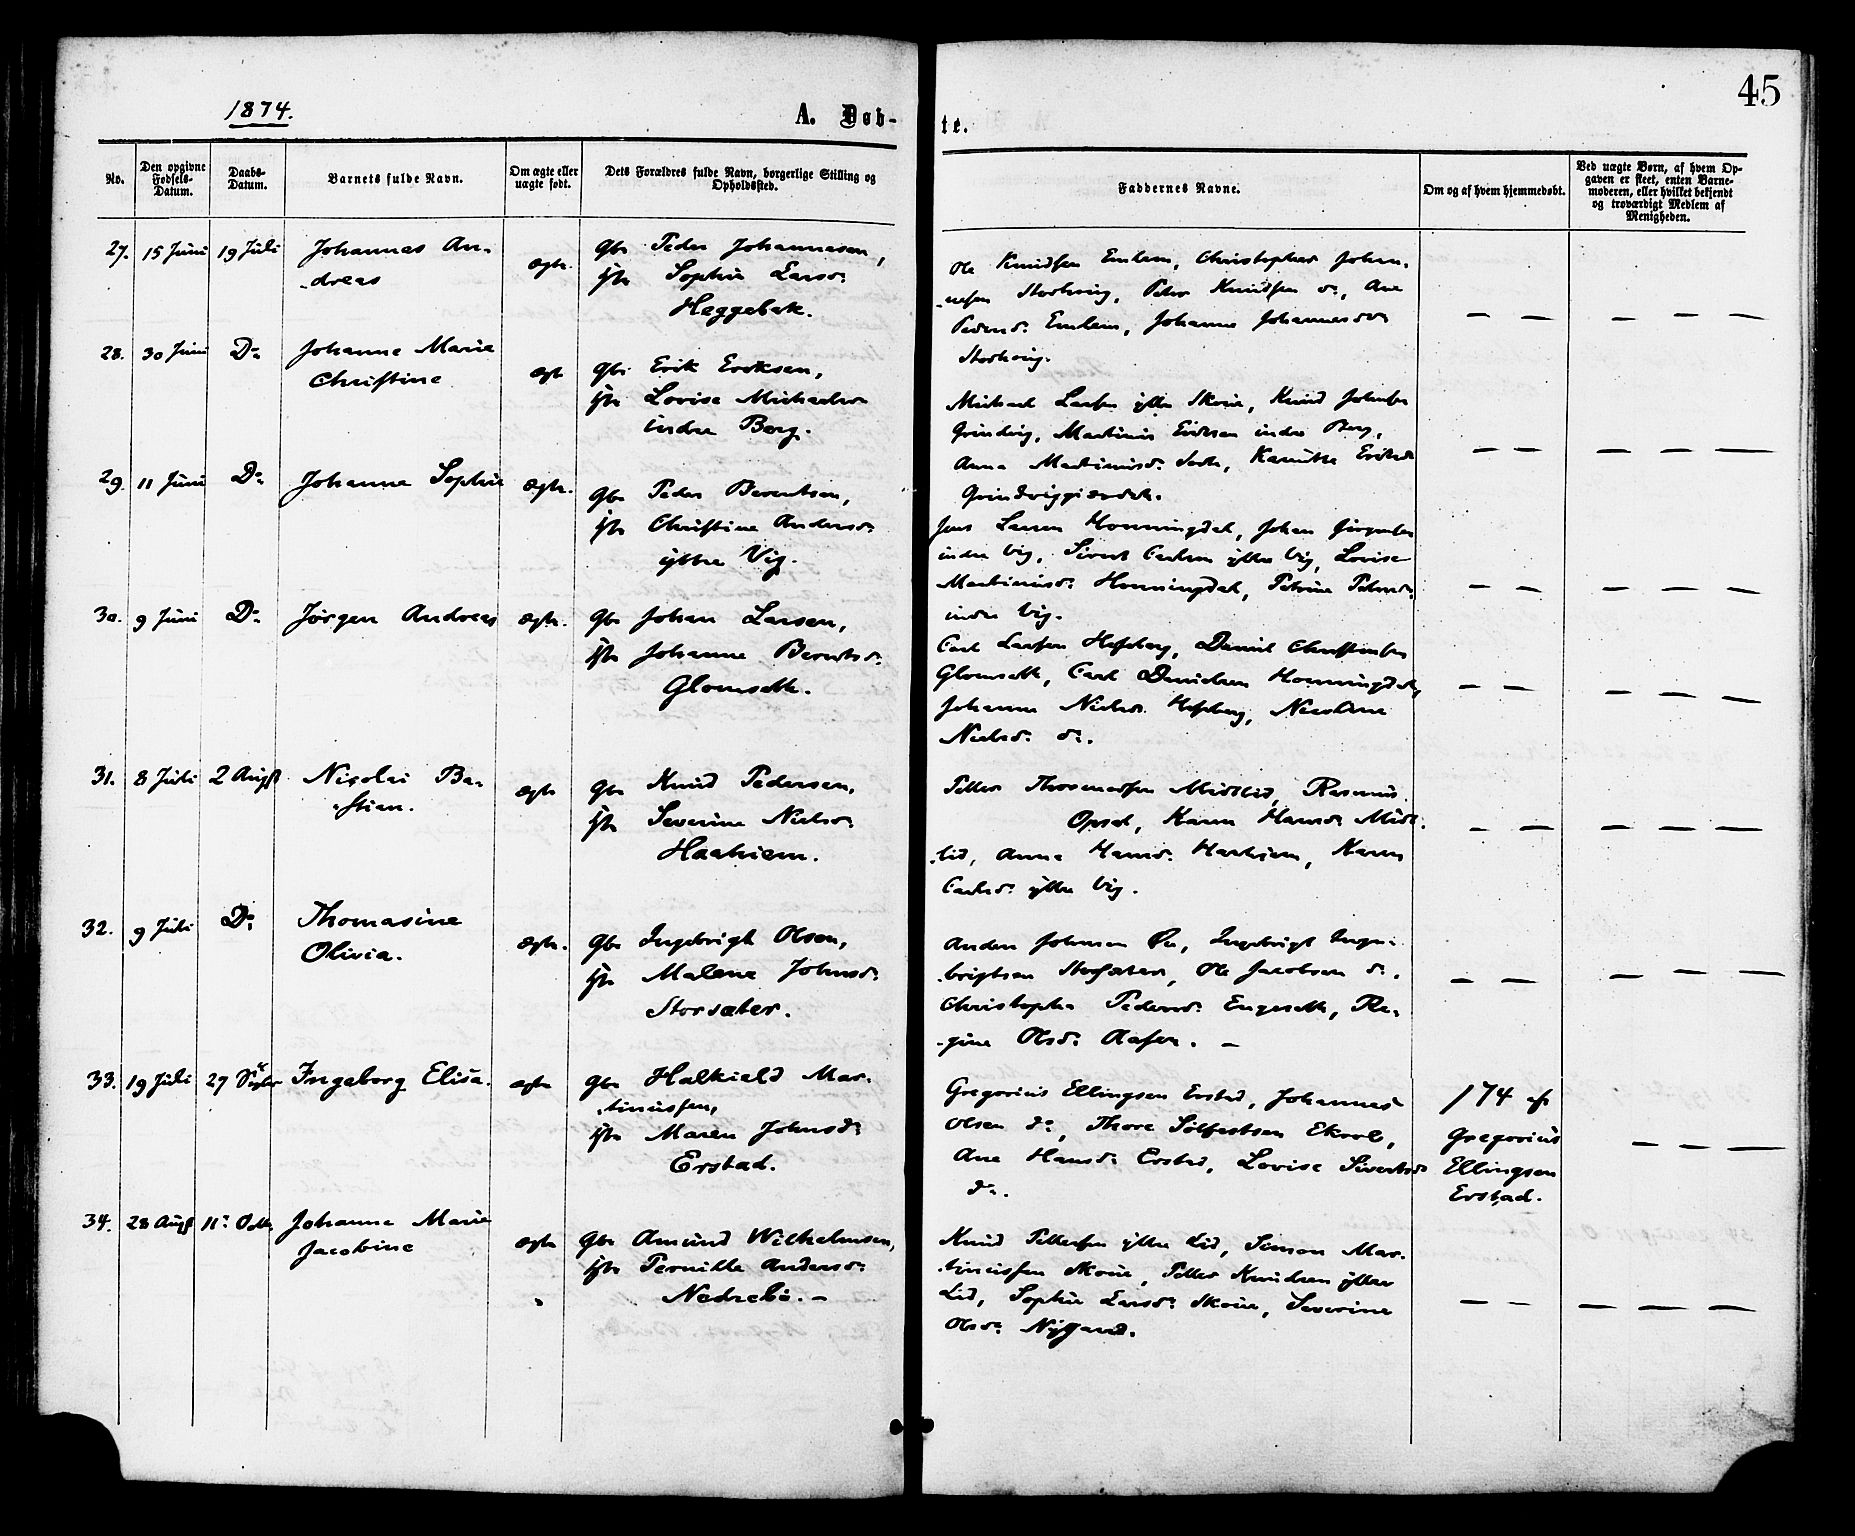 45
1874.
A. Døb-
te.
No.
Den opgivne Fødsels-Datum.
Daabs-Datum.
Barnets fulde Navn.
Om ægte eller uægte født.
Dets Forældres fulde Navn, borgerlige Stilling og Opholdssted.
Faddernes Navne.
Om og af hvem hjemmedøbt.
Ved uægte Børn, af hvem Op-
gaven er skeet, enten Barne-
moderen, eller hvilket bekjendt
og troværdigt Medlem af
Menigheden.
27. 15 Juni 19 Juli Johannes An-
-dreas
ægte.
Gbr Peder Johannesen,
Sophie Larsd:
Heggebak.
Ole Knudsen Emlem, Christopher Johan-
-nesen Storhoug, Peter Knudsen do, Ane
Pedersd: Emlem, Johanne Johannesdr
Storhoug.
28. 30 Juni Do
Johanne Marie
Christine
ægte
Gbr Erik Eriksen,
Lovise Michaelsd
indre Berg.
Michael Larsen yttre Skoue, Knud Johnsen
Grindvig, Martinus Eriksen indre Berg,
Anna Martinusd:
Grindviggjærdet.
29. 11 Juni Do Johanne Sophie
ægte.
Gbr Peder Berentsen,
Christine Andersd:
yttre Vig.
Jens Larsen Honningdal, Johan
indre Vig, Sivert Carlsen yttre Vig, Lovise
Martinusd: Honningdal, Petrine
indre Vig.
30. 9 Juni Do Jørgen Andreas
ægte.
Gbr Johan Larsen,
Johanne Berntsd:
Glomsæth.
Carl Larsen Hesseberg, Daniel
Glomsæth, Carl Danielsen Honningdal,
Johanne Nielsd: Hesseberg, Nicoline
Nielsd: do.
31. 8 Juli 2 Augst Nicolai Ba-
-stian.
ægte
Gbr Knud Pedersen,
Severine Nielsd:
Haahiem.
Petter Thomassen Midtlid, Rasmus
Opsal, Karen Hansd: Midt-
-lid, Anne Hansd: Haahiem, Karen
Carlsd: yttre Vig.
32. 9 Juli Do
Thomasine
Olivia.
ægte.
Gbr Ingebrigt Olsen,
Malene Johnsd:
Storsæter.
Anders Johnsen Ør, Ingebrigt Inge-
-brigtsen Storsæter, Ole Jacobsen do.
Christopha Pedersd: Engesæth, Re-
-gine Olsd: Aasen. –
33. 19 Juli 27 Septbr Ingeborg Elisa.
ægte
Gbr Halkield Mar-
-tinussen,
Maren Johnsd:
Erstad.
Gregorius Ellingsen Erstad, Johannes
Olsen do, Thore Solfestsen Ekrol,
Ane Hansd: Erstad, Lovise Sivertsd:
do.
17/4 af
Gregorius
Ellingsen
Erstad.
34. 28 Augst 11: Octbr. Johanne Marie
Jacobine
ægte
Gbr Amund Wilhelmsen,
Pernille Andersd:
Nedrebø. –
Knud Pettersen yttre Lid, Simon Mar-
-tinussen Skoue, Petter Knudsen yttre
Lid, Sophie Larsd: Skoue, Severine
Olsd: Nygaard.